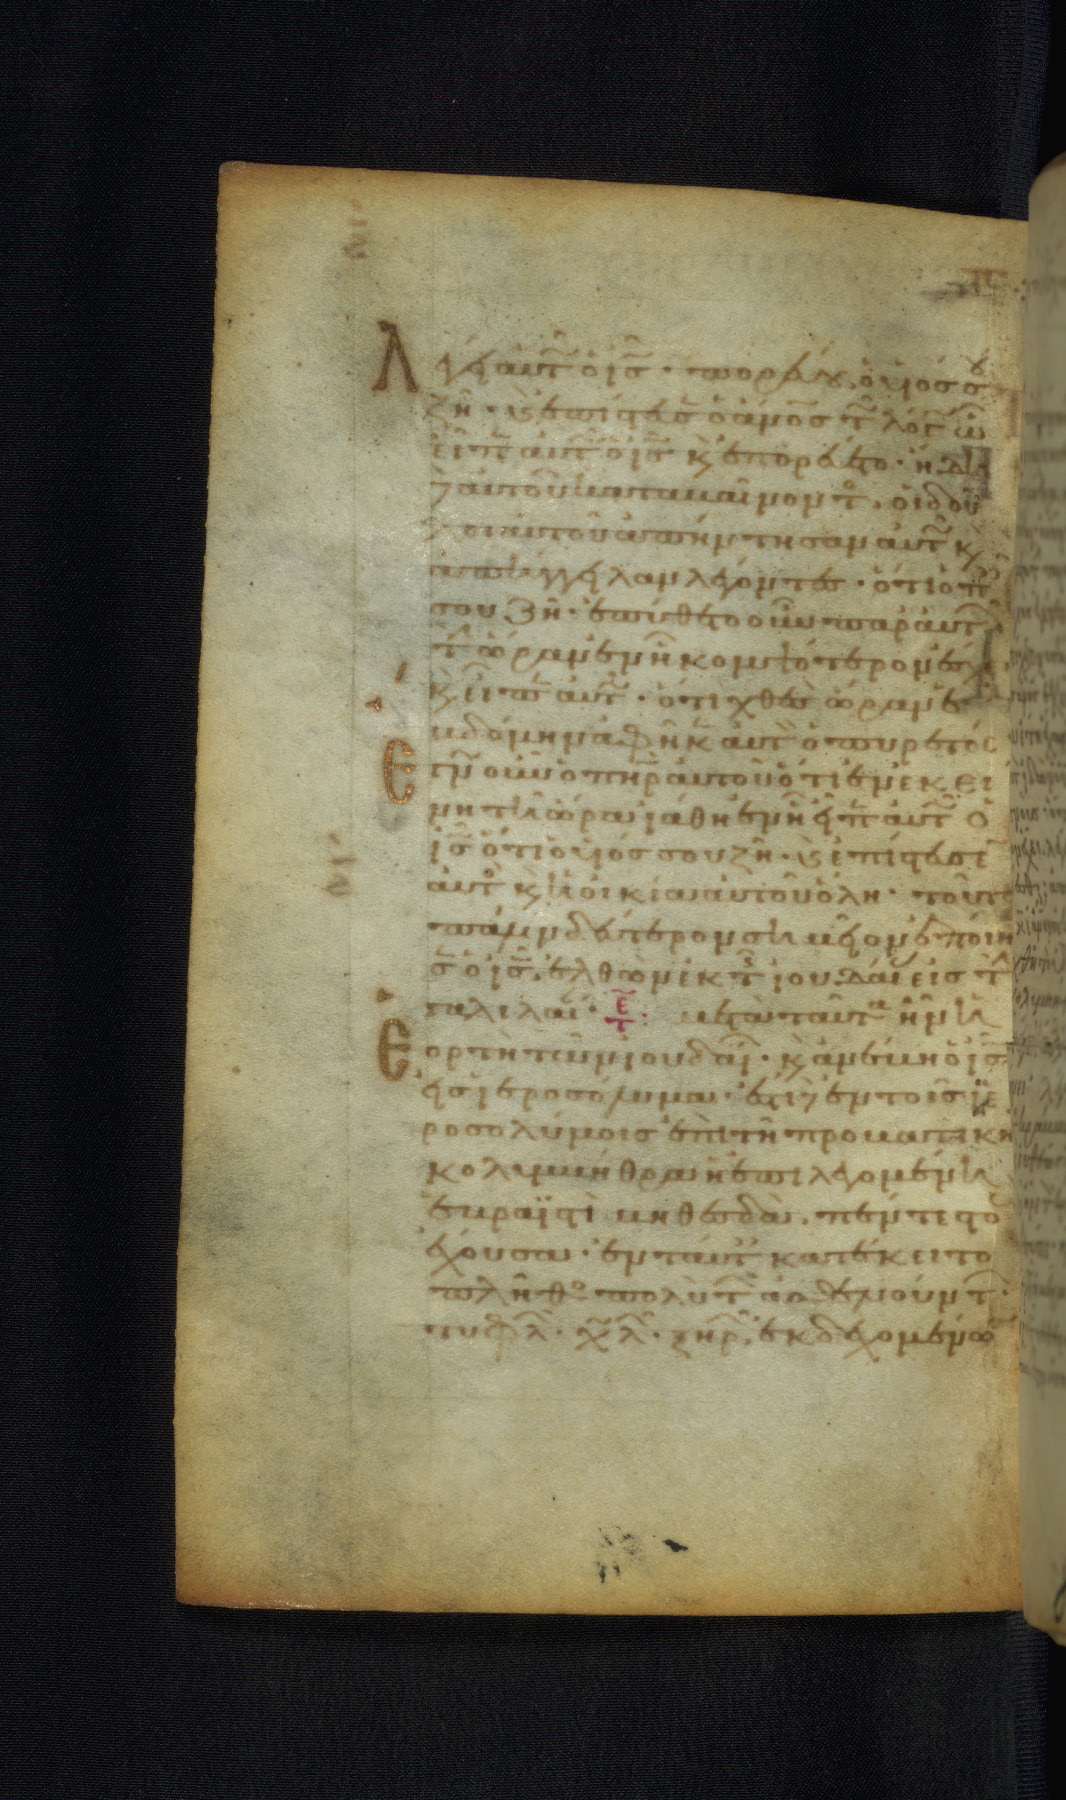 Λέγει αὐτ ὁ ις · πορεύου, ὁ υιός σου
ζῆ · κ ἐπίστευσεν ὁ ἄνος τ λόγ ὧ
εἶπεν αὐτ ὁ ις κ ἐπορεύετο · ἤδη
δὲ αὐτοῦ καταβαίνοντ, οἱ δοῦ
λοι αὐτοῦ ἀπήντησαν αὐτ κ
ἀπήγγειλαν λέγοντες · ὅτι ὁ π
σου ζῆ · ἐπύθετο οὖν παρ αὐτ
τ ὥραν ἐν ἧ κομψότερον ἔσχε
κ εἶπον αὐτ · ὅτι χθὲς ὥραν ἑ
βδόμην ἀφῆκεν αὐτ ὁ πυρετός
Ε γν οὖν ὁ πηρ αὐτοῦ ὅτι ἐν ἐκεί
νη τῆ ὥρα ἐν ἧ εἶπεν αὐτ ὁ
ις ὅτι ὁ υιός σου ζῆ · κ ἐπίστευσεν
αὐτὸς κ ἡ οἰκία αὐτοῦ ὅλη · τοῦτο
πάλιν δεύτερον σημεῖον ἐποίη
σεν ὁ ις, ἐλθὼν ἐκ τ ιουδαί εἰς τ
γαλιλαί · μετὰ ταῦτα ἦν ἡ
Ε ορτὴ τῶν ιουδαί · κ ἀνέβη ὁ ις
εἰς ιεροσόλυμα · ἔστι δὲ ἐν τοῖς ιε
ροσολύμοις ἐπὶ τῆ προβατικῆ
κολυμβήθρα ἡ ἐπιλεγομένη
ἑβραϊστὶ βηθεσδὰ, πέντε στο
ἔχουσα · ἐν ταύτ κατέκειτο
πλῆθο πολὺ τ ἀσθενούντ ·
τυφλ · χλ · ξηρ, ἐκδεχομένω